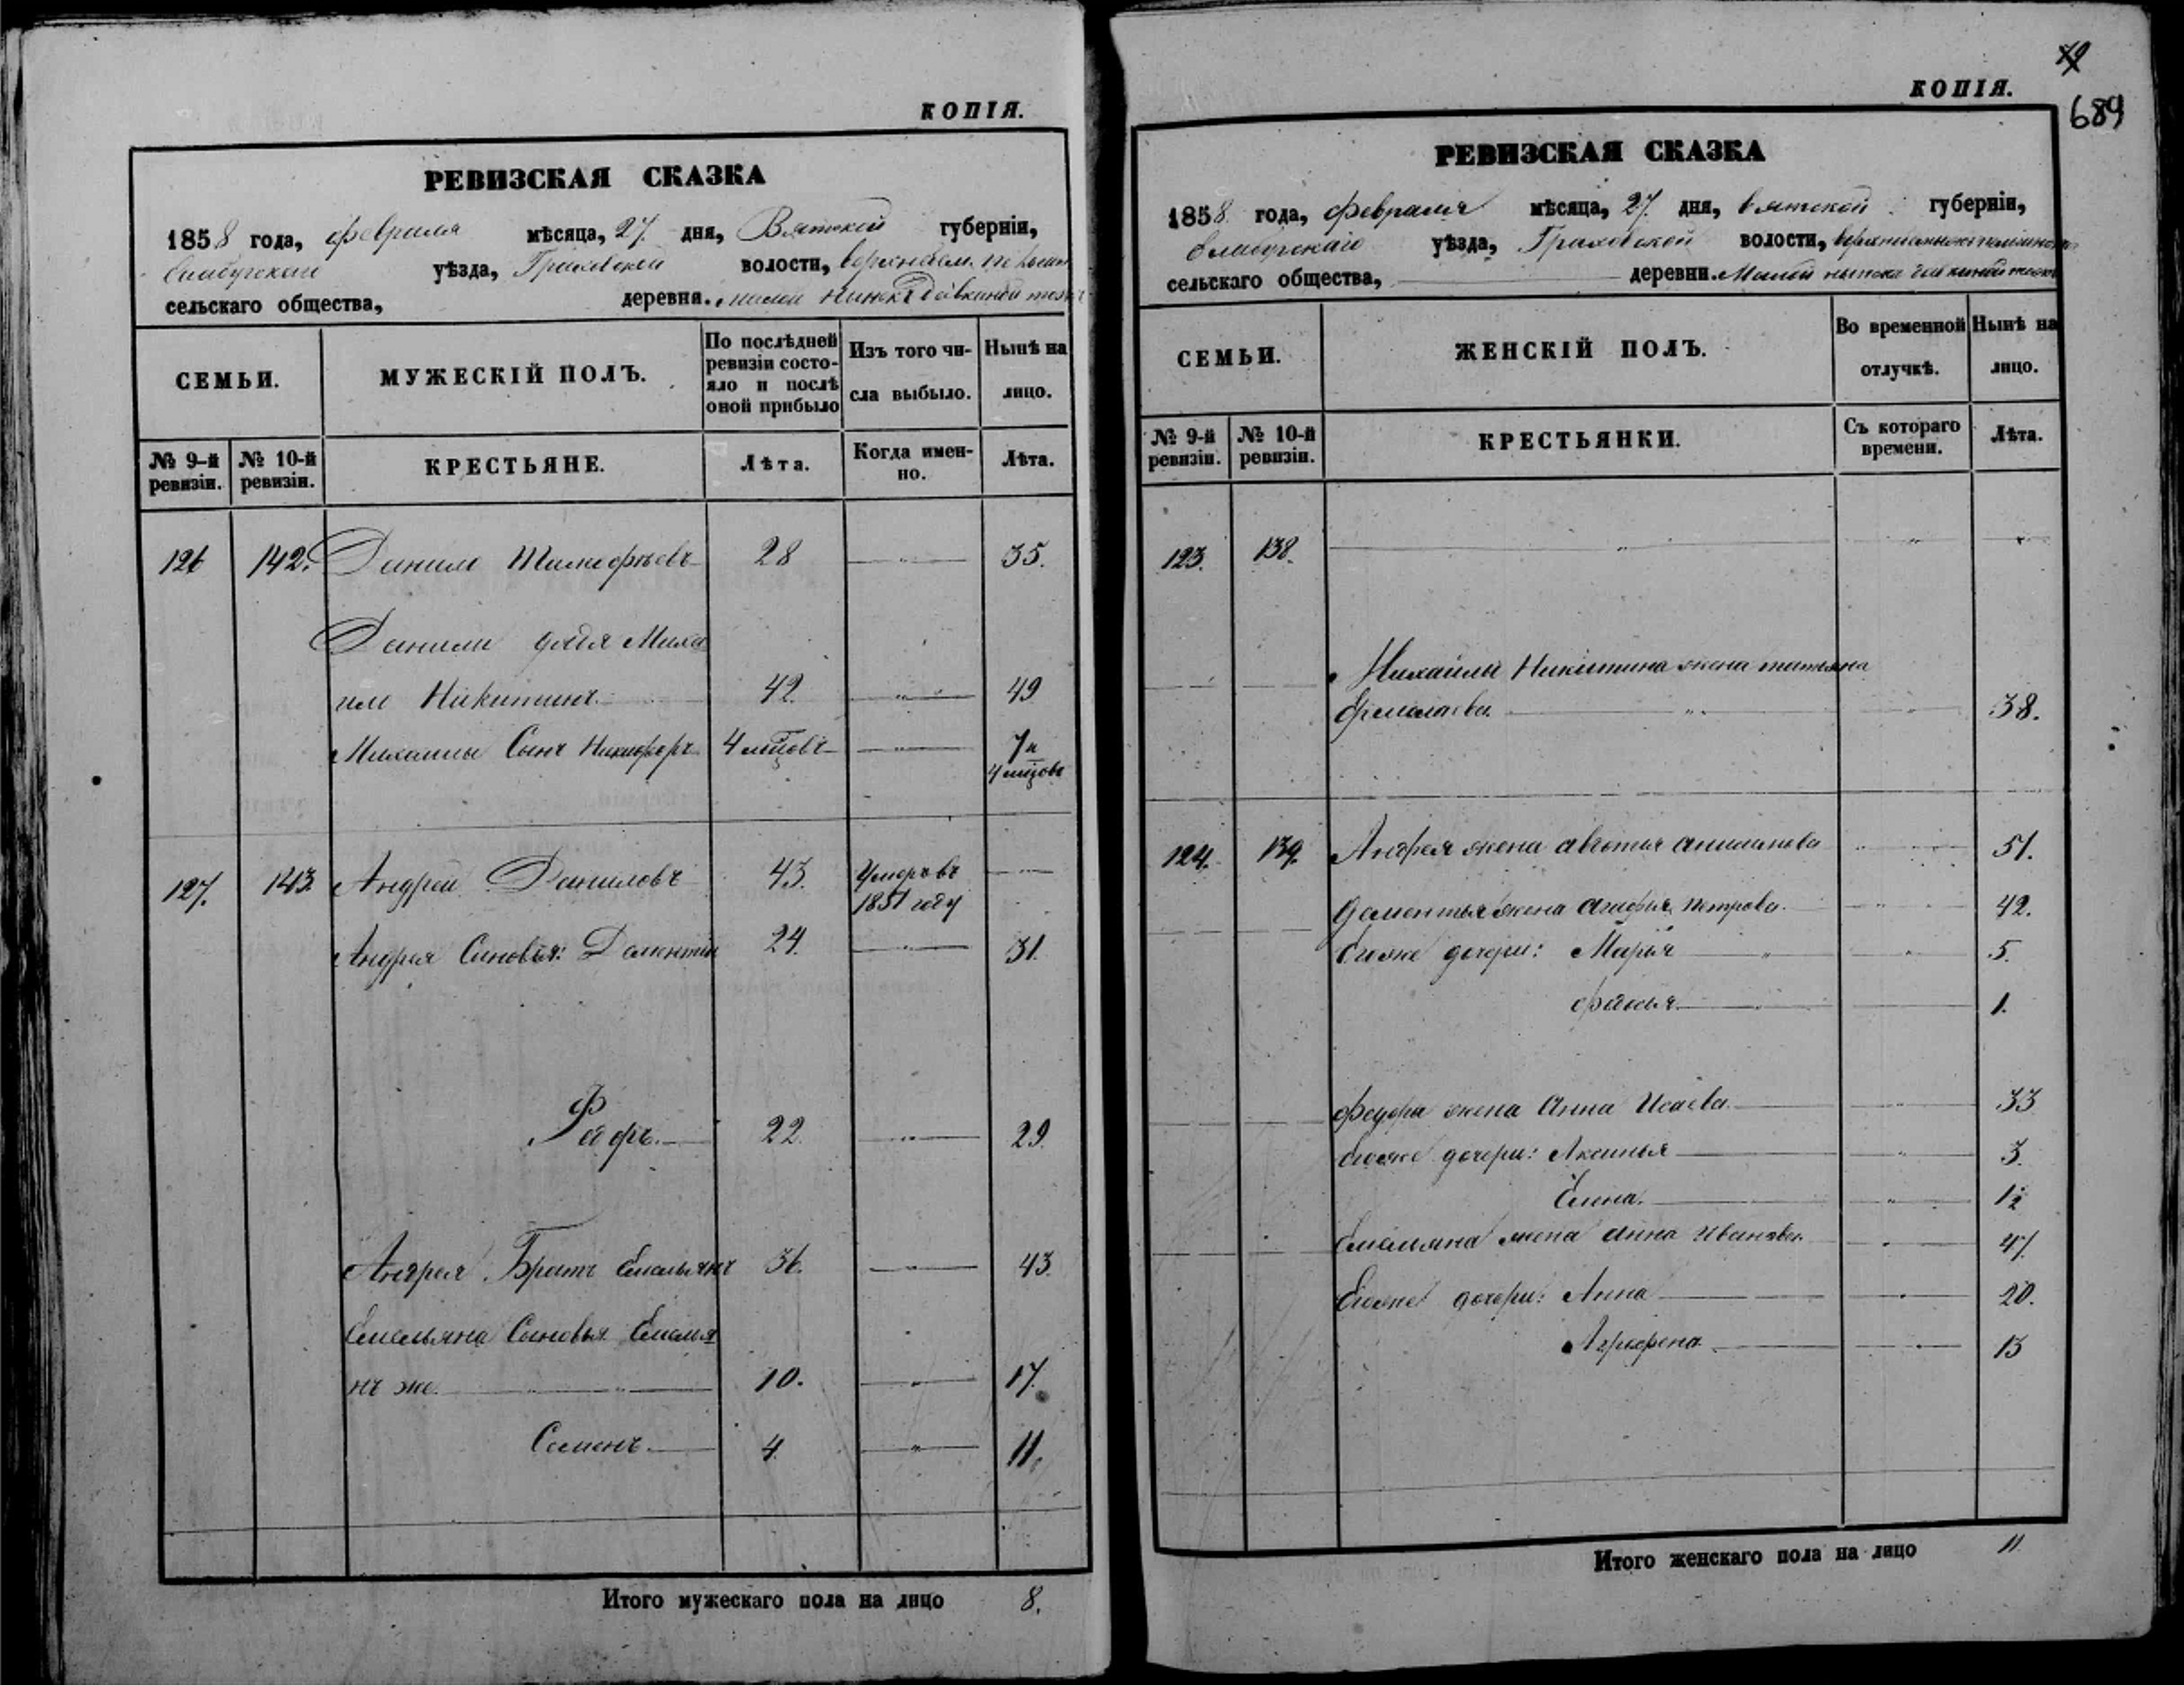 КОПІЯ.
РЕВИЗСКАЯ СКАЗКА
1858 года, февраля мѣсяца, 27. дня, Вятской губерніи,
Елабугскаго уѣзда, Граховской волости,
сельскаго общества, деревня. малой
СЕМЬИ.
МУЖЕСКІЙ ПОЛЪ.
По послѣдней ревизіи состояло и послѣ оной прибыло
Изъ того числа выбыло.
Нынѣ на лицо.
№ 9-й ревизіи.
№ 10-й ревизіи.
КРЕСТЬЯНЕ.
Лѣта.
Когда именно.
Лѣта.
126 142. Данило Тимофѣевъ 28 35.
Данилы дядя Миха
ило Никитинъ 42. 49
Михаилы Сынъ Никифоръ 4 мѣцовъ 7 и
4 мѣцовъ
127. 143 Андрей Даниловъ 43. Умеръ въ
1851 году
Андрея Сыновья: Дементій 24. 31.
Федоръ. 22. 29.
Андрея Братъ Емельянъ 36. 43.
Емельяна Сыновья Емелья
нъ же. 10. 17.
Семенъ. 4. 11.
Итого мужескаго пола на лицо 8.
689
КОПІЯ.
РЕВИЗСКАЯ СКАЗКА
1858. года, февраля мѣсяца, 27. дня, вятской губерніи,
Елабугскаго уѣзда, Граховской волости,
сельскаго общества, деревни. Малой
СЕМЬИ.
ЖЕНСКІЙ ПОЛЪ.
Во временной отлучкѣ.
Нынѣ на лицо.
№ 9-й ревизіи.
№ 10-й ревизіи.
КРЕСТЬЯНКИ.
Съ котораго времени.
Лѣта.
123. 138.
Михайлы Никитина жена татьяна
Ермолаева. 38.
124. 139. Андрея жена авдотья 51.
Дементья жена агафья петрова 42.
Егоже дочери: Марья 5.
1.
Федора жена Анна Исаева 33
Егоже дочери: Аксинья 3.
Елена. 1½
Емельяна жена анна Иванова. 47.
Егоже дочери: Анна 20.
Агрофена 13
Итого женскаго пола на лицо 11.